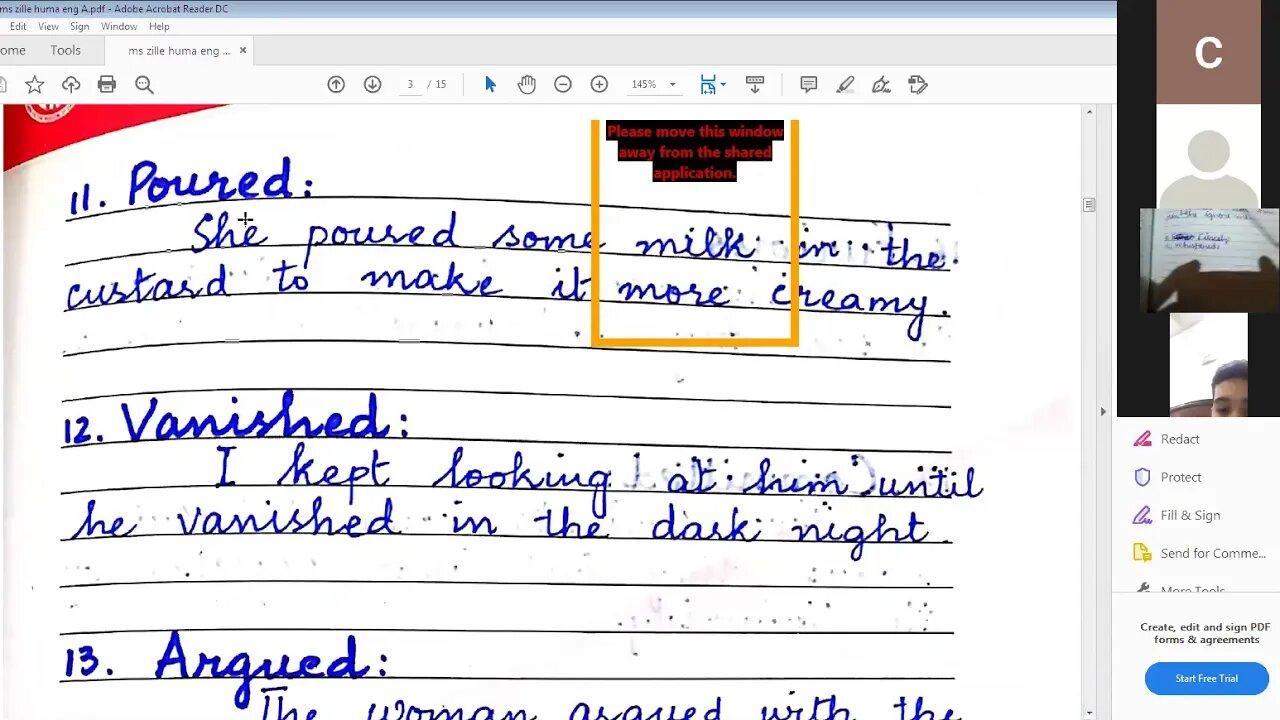 ms zille huma eng A.pdf - Adobe Acrobat Reader DC
Edit View Sign Window Help
ome Tools ms zille huma eng ... ×
3 / 15 145%
Please move this window
away from the shared
application.
11. Poured:
She poured some milk in the
custard to make it more creamy.
12. Vanished:
I kept looking at him until
he vanished in the dark night.
13. Argued:
The woman argued with the
C
Redact
Protect
Fill & Sign
Send for Comme...
More Tools
Create, edit and sign PDF
forms & agreements
Start Free Trial